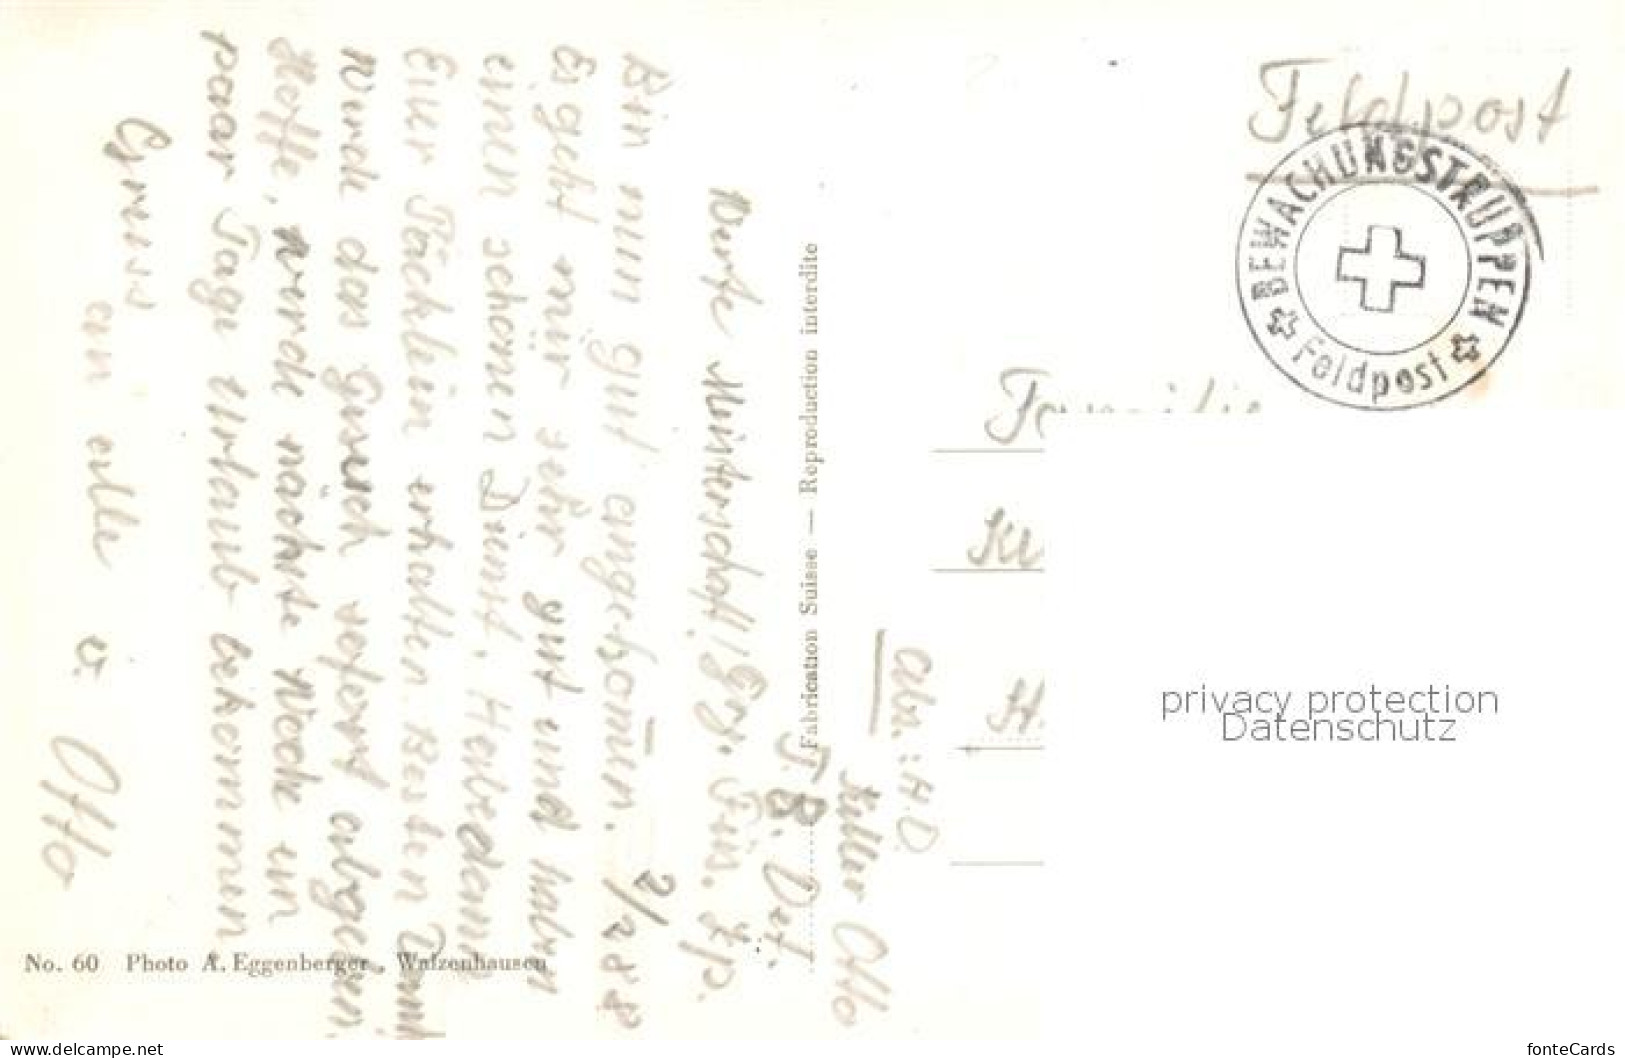 Feldpost
BEWACHUNGSTRUPPEN
Feldpost
Familie
Werte Meisterschaft!
Bin nun gut angekomen.
Es geht mir sehr gut und haben
einen schönen Dienst. Habe
Euer Päcklein erhalten. Besten Dank
Werde das Gesuch sofort abgeben.
Hoffe, werde nächste Woche ein
paar Tage Urlaub bekommen
Gruss
an alle
Otto
Abs: H.D.
Keller Otto
Grz. Füs. Kp.
J. B. Det.
2/288
Fabrication Suisse — Reproduction interdite
No. 60 Photo A. Eggenberger, Walzenhausen
privacy protection
Datenschutz
www.delcampe.net
fonteCards